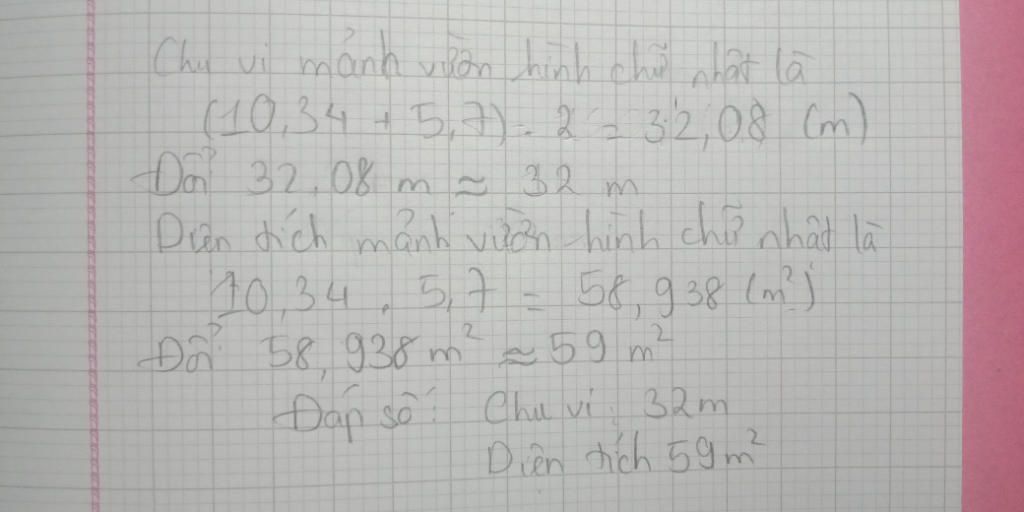 Chu vi mảnh vườn hình chữ nhật là
(10,34 + 5,7) . 2 = 32,08 (m)
Đổi 32,08 m ≈ 32 m
Diện tích mảnh vườn hình chữ nhật là
10,34 . 5,7 = 58,938 (m²)
Đổi 58,938 m² ≈ 59 m²
Đáp số: Chu vi: 32m
Diện tích 59m²